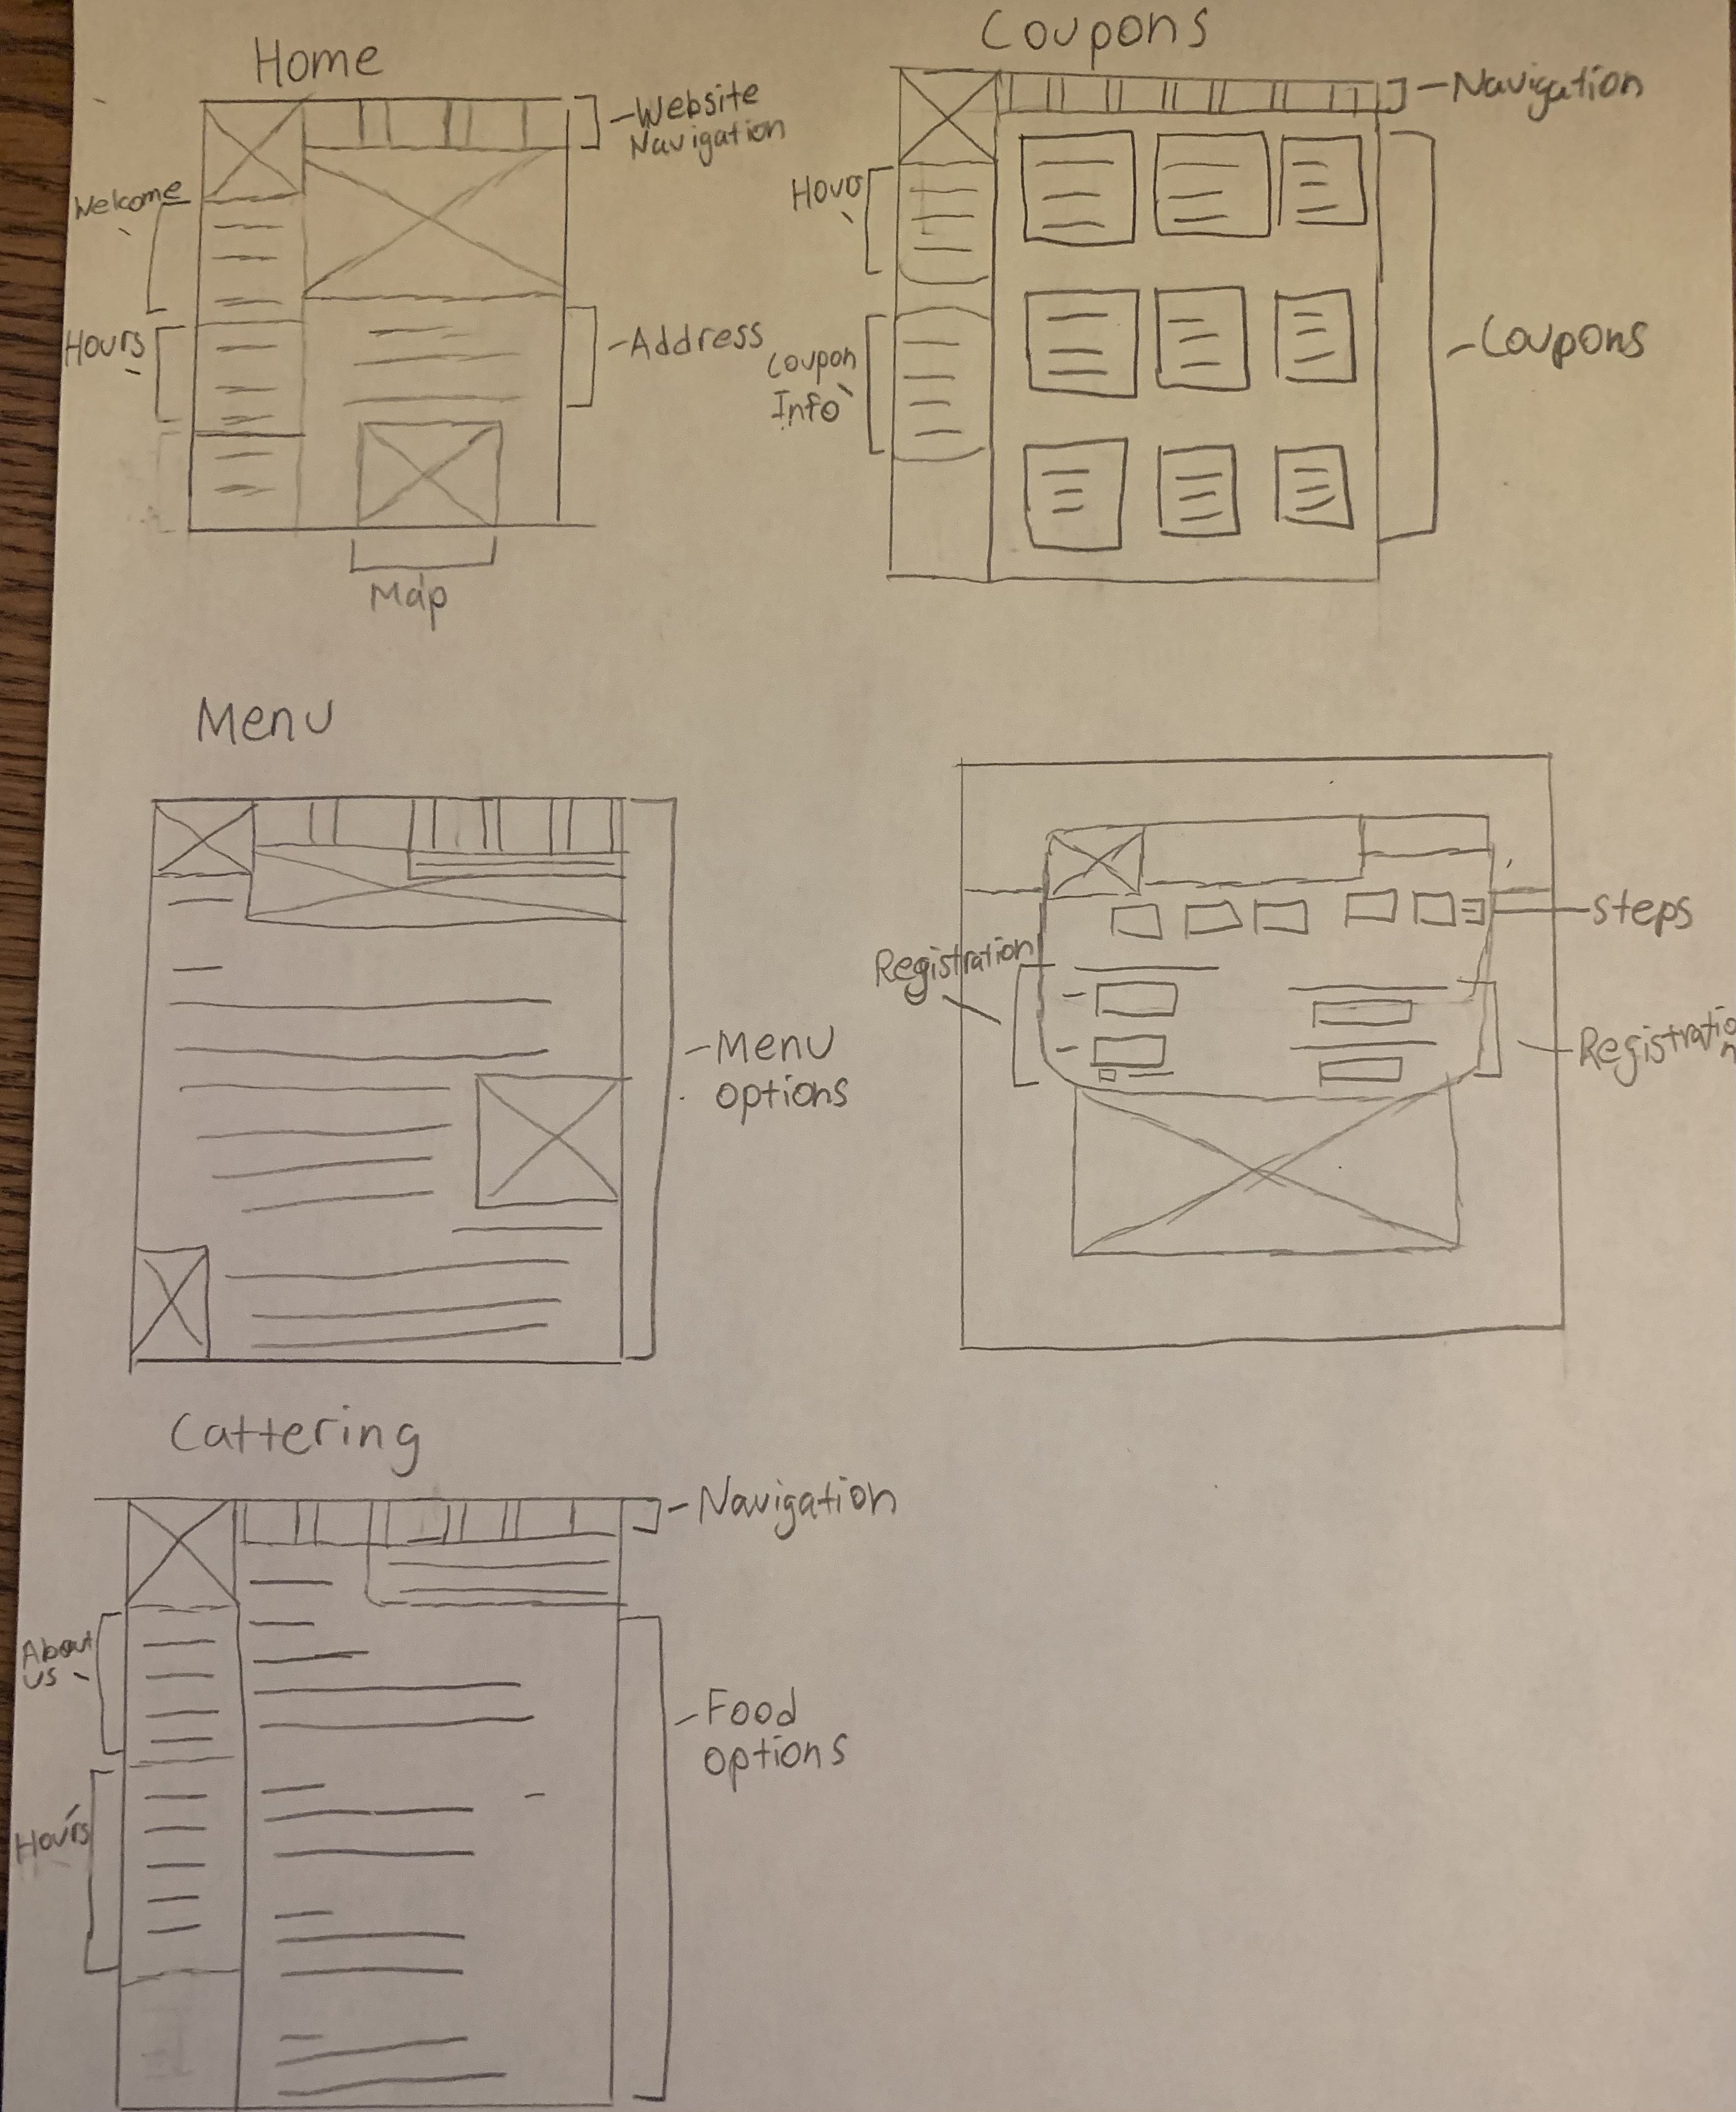 Home
Website
Navigation
Welcome
Hours
Address
Map
Coupons
Navigation
Hours
Coupon
Info
Coupons
Menu
Menu
options
steps
Registration
Registratio
n
Cattering
Navigation
About
us
Hours
Food
options